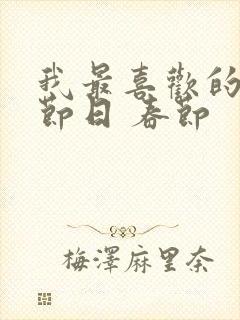 我最喜歡的
節日 春節
梅澤麻里奈